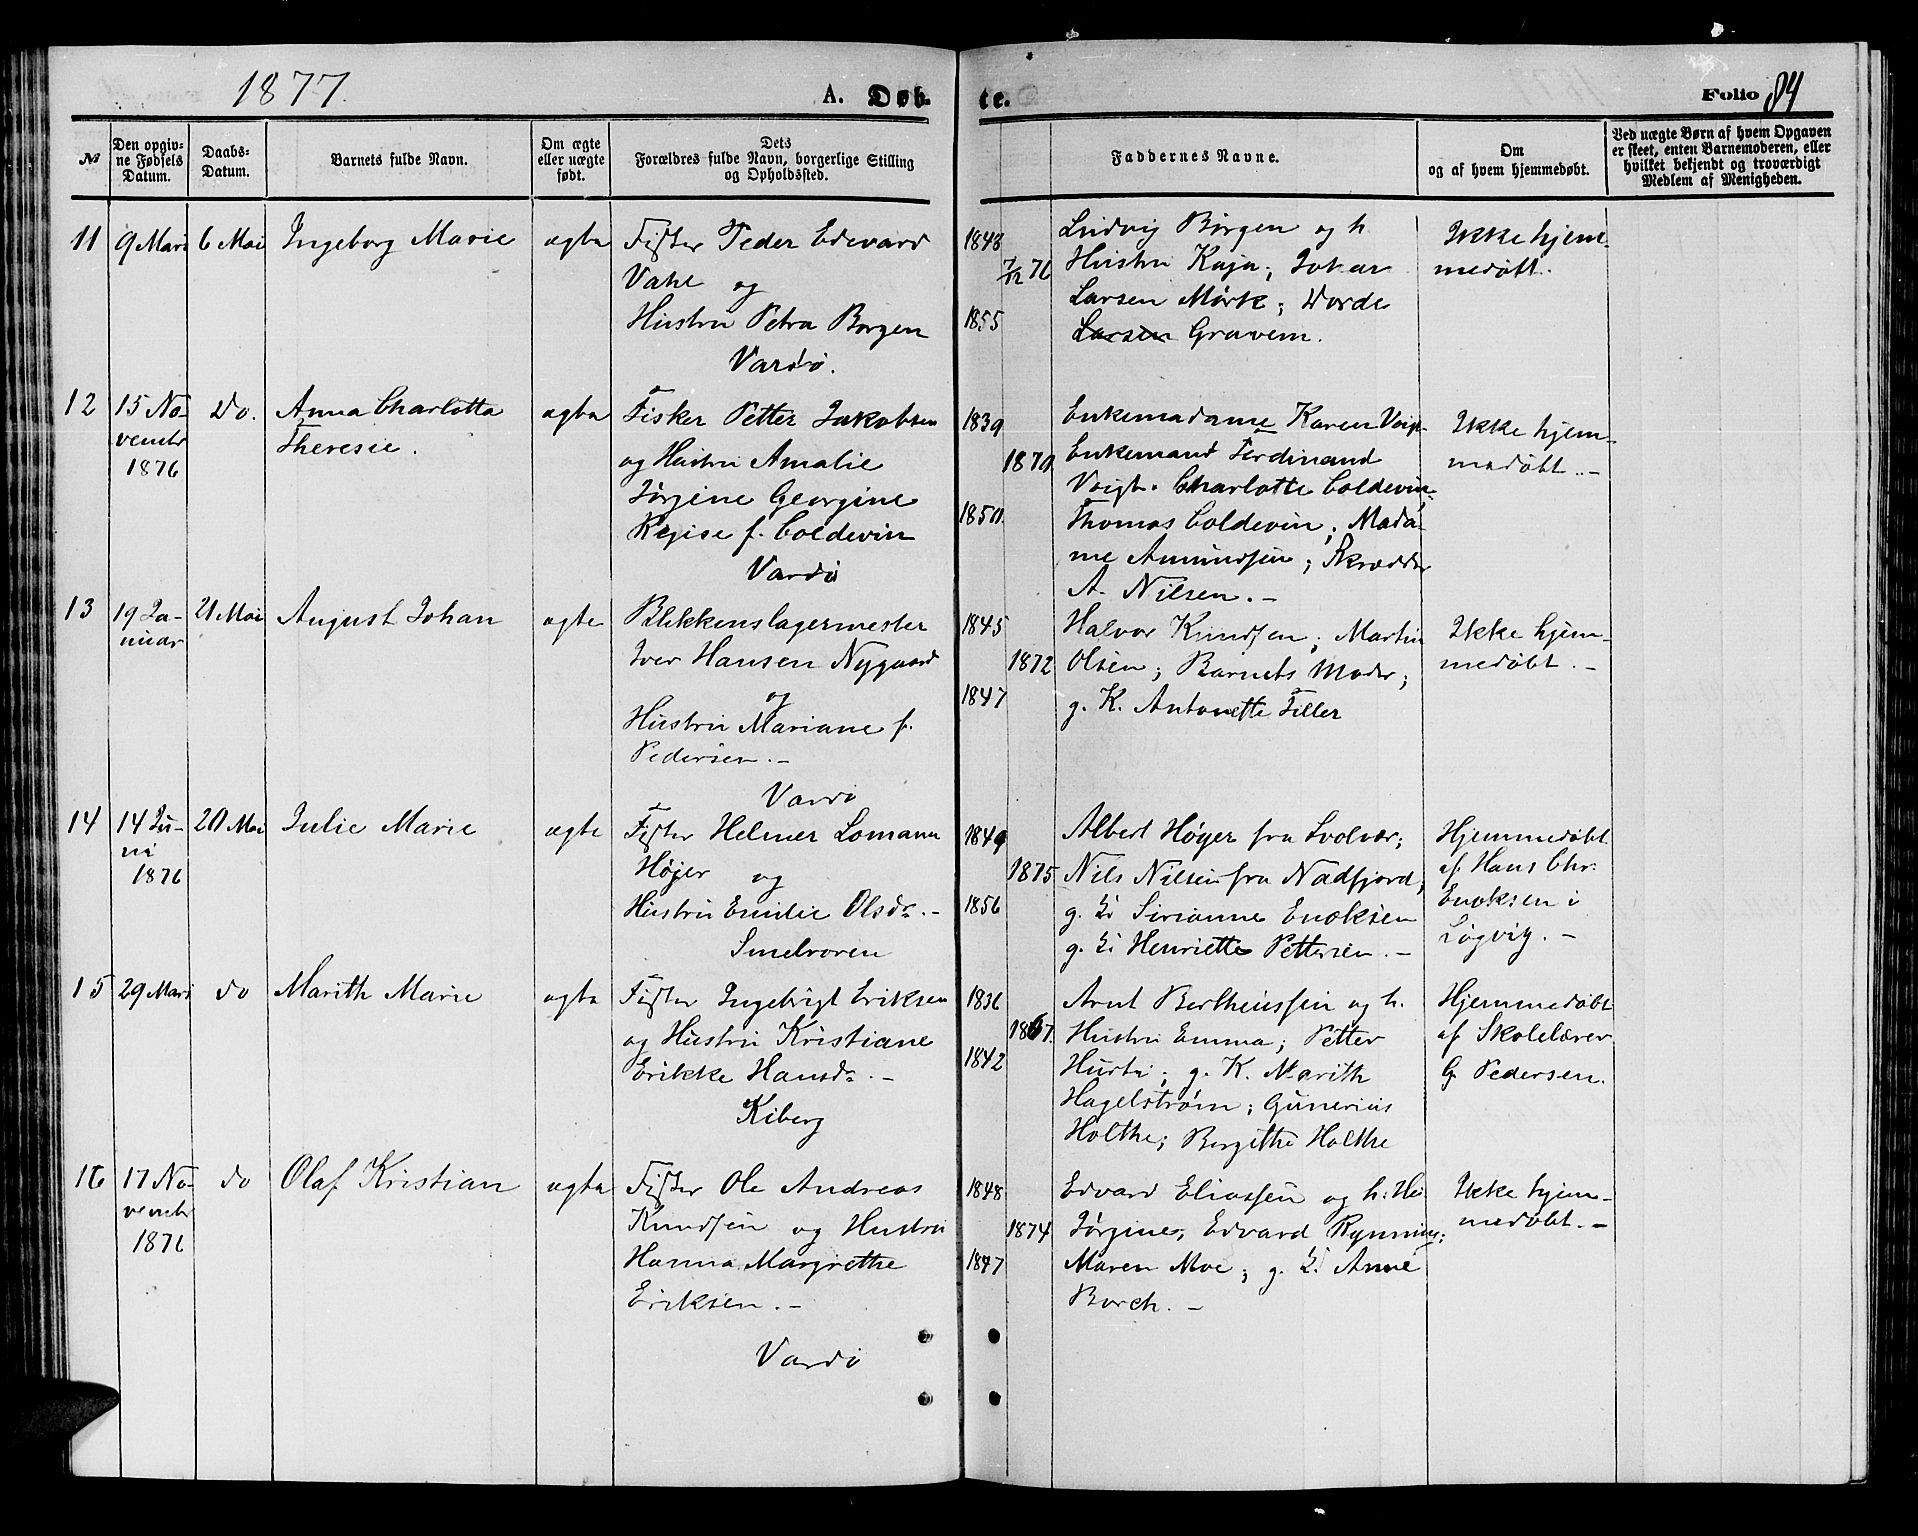 1877.
A. Døb-
te.
Folio 84
№
Den opgiv-
ne Fødsels
Datum.
Daabs-
Datum.
Barnets fulde Navn.
Om ægte
eller uægte
født.
Dets
Forældres fulde Navn, borgerlige Stilling
og Opholdssted.
Faddernes Navne.
Om
og af hvem hjemmedøbt.
Ved uægte Børn af hvem Opgaven
er skeet, enten Barnemoderen, eller
hvilket bekjendt og troværdigt
Medlem af Menigheden.
11
9 Mars
6 Mai
Ingeborg Marie
ægte
Fisker Peder Edevard
og
Hustru Petra Borgen
Vardø.
1848
7/12 76
1855
Ludvig Børgen og h.
Hustru Kaja; Johan
Larsen Mørk; Dorde
Larsen Gravem.
Ikke hjem-
medøbt.
12
15 No-
vembr
1876
Do.
Anna Charlotta
Theresie.
ægte
Fisker Petter Jakobsen
og Hustru Amalie
Jørgine Georgine
Regise f. Coldevin
Vardø
1839
1870
1850
Enkemadame Karen Voigt
Enkemand Ferdinand
Voigt. Charlotte Coldevin;
Thomas Coldevin; Mada-
me Amundsen; Skrædder
A. Nilsen. -
Ikke hjem-
medøbt. -
13
19 Ja-
nuar
21 Mai
August Johan
ægte
Blikkenslagermester
Iver Hansen Nygaard
og
Hustru Mariane f.
Pedersen. -
Vardø
1845
1872
1847
Halvor Knudsen; Martin
Olsen; Barnets Moder;
g. K. Antonette Filler
Ikke hjem-
medøbt. -
14
14 Ju-
ni
1876
20 Mai
Julie Marie
ægte
Fisker Helmer Lomann
Højer og
Hustru Emilie Olsdr. -
Smelroren
1849
1875
1856
Albert Høyer fra Svolvær;
Nils Nilsen fra Nadfjord;
g. K. Sirianne Enoksen
g. K. Henriette Pettersen. -
Hjemmedøbt
af Hans Chr.
Enoksen i
Løgvig. -
15
29 Mars
do
Marith Marie
ægte
Fisker Ingebrigt Eriksen
og Hustru Kristiane
Erikke Hansdr. -
Kiberg
1836
1867.
1842
Arnt Bertheussen og h.
Hustru Emma; Petter
Hurti; g. K. Marith
Hagelstrøm; Gunerius
Holthe; Bergithe Holthe
Hjemmedøbt
af Skolelærer
G. Pedersen.
16
17 No-
vembr
1876
do
Olaf Kristian
ægte
Fisker Ole Andreas
Knudsen og Hustru
Hanna Margrethe
Eriksen. -
Vardø
1848
1874
1847
Edvard Eliassen og h. Hu
Jørgine; Edvard Rynning;
Maren Moe; g. K. Anne
Borch. -
Ikke hjem-
medøbt. -